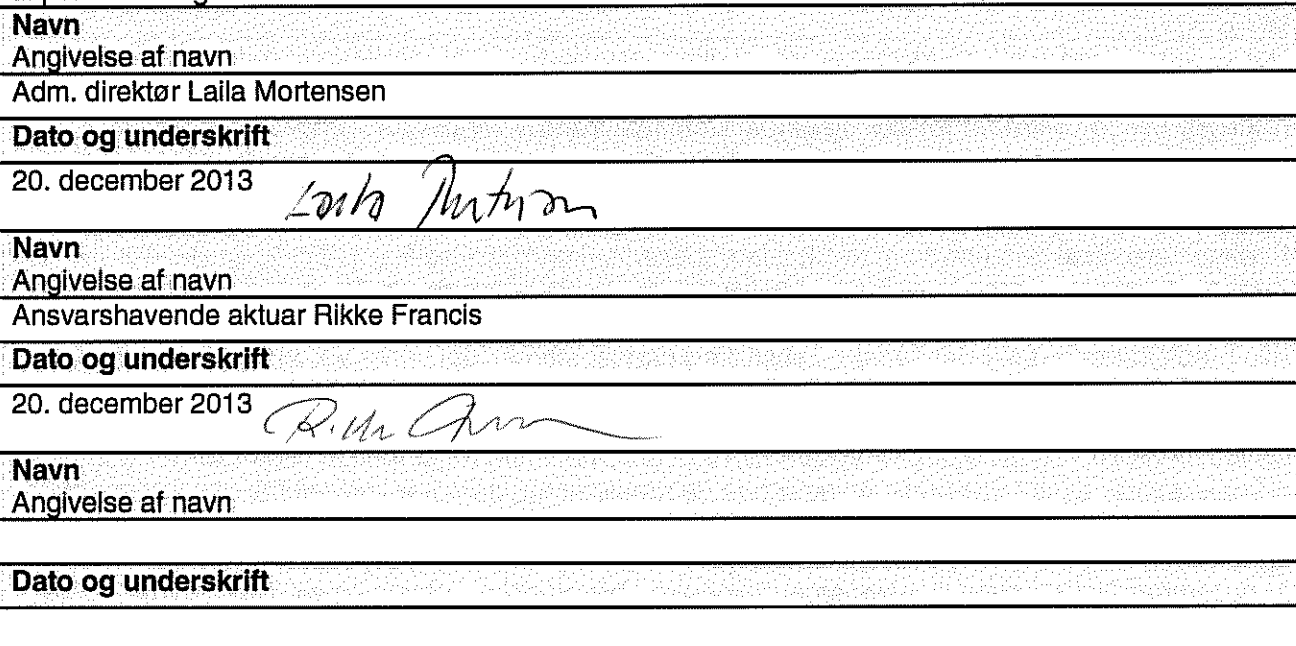 Navn
Angivelse af navn
Adm. direktør Laila Mortensen
Dato og underskrift
20. december 2013
Navn
Angivelse af navn
Ansvarshavende aktuar Rikke Francis
Dato og underskrift
20. december 2013
Navn
Angivelse af navn
Dato og underskrift